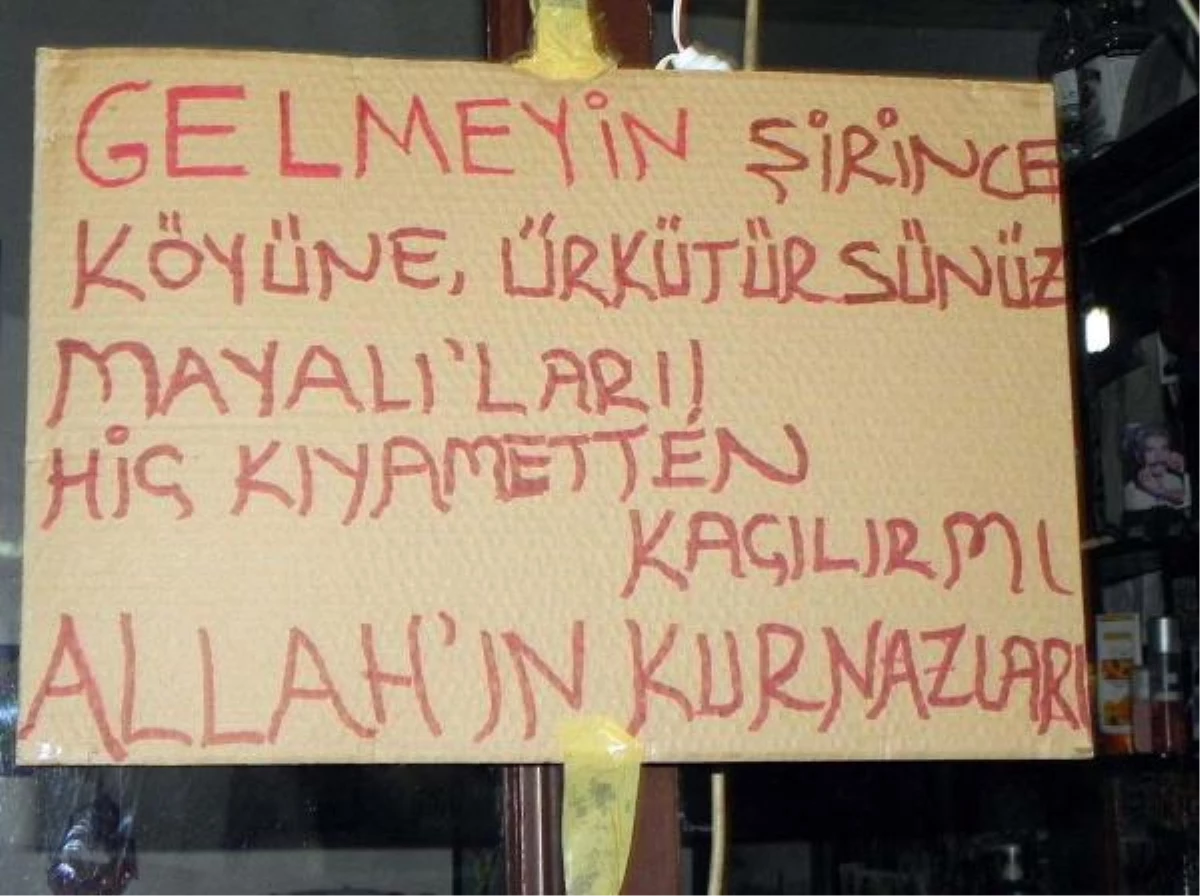 GELMEYİN ŞİRİNCE
KÖYÜNE, ÜRKÜTÜRSÜNÜZ
MAYALI'LARI!
HİÇ KIYAMETTEN
KAÇILIRMI
ALLAH'IN KURNAZLARI